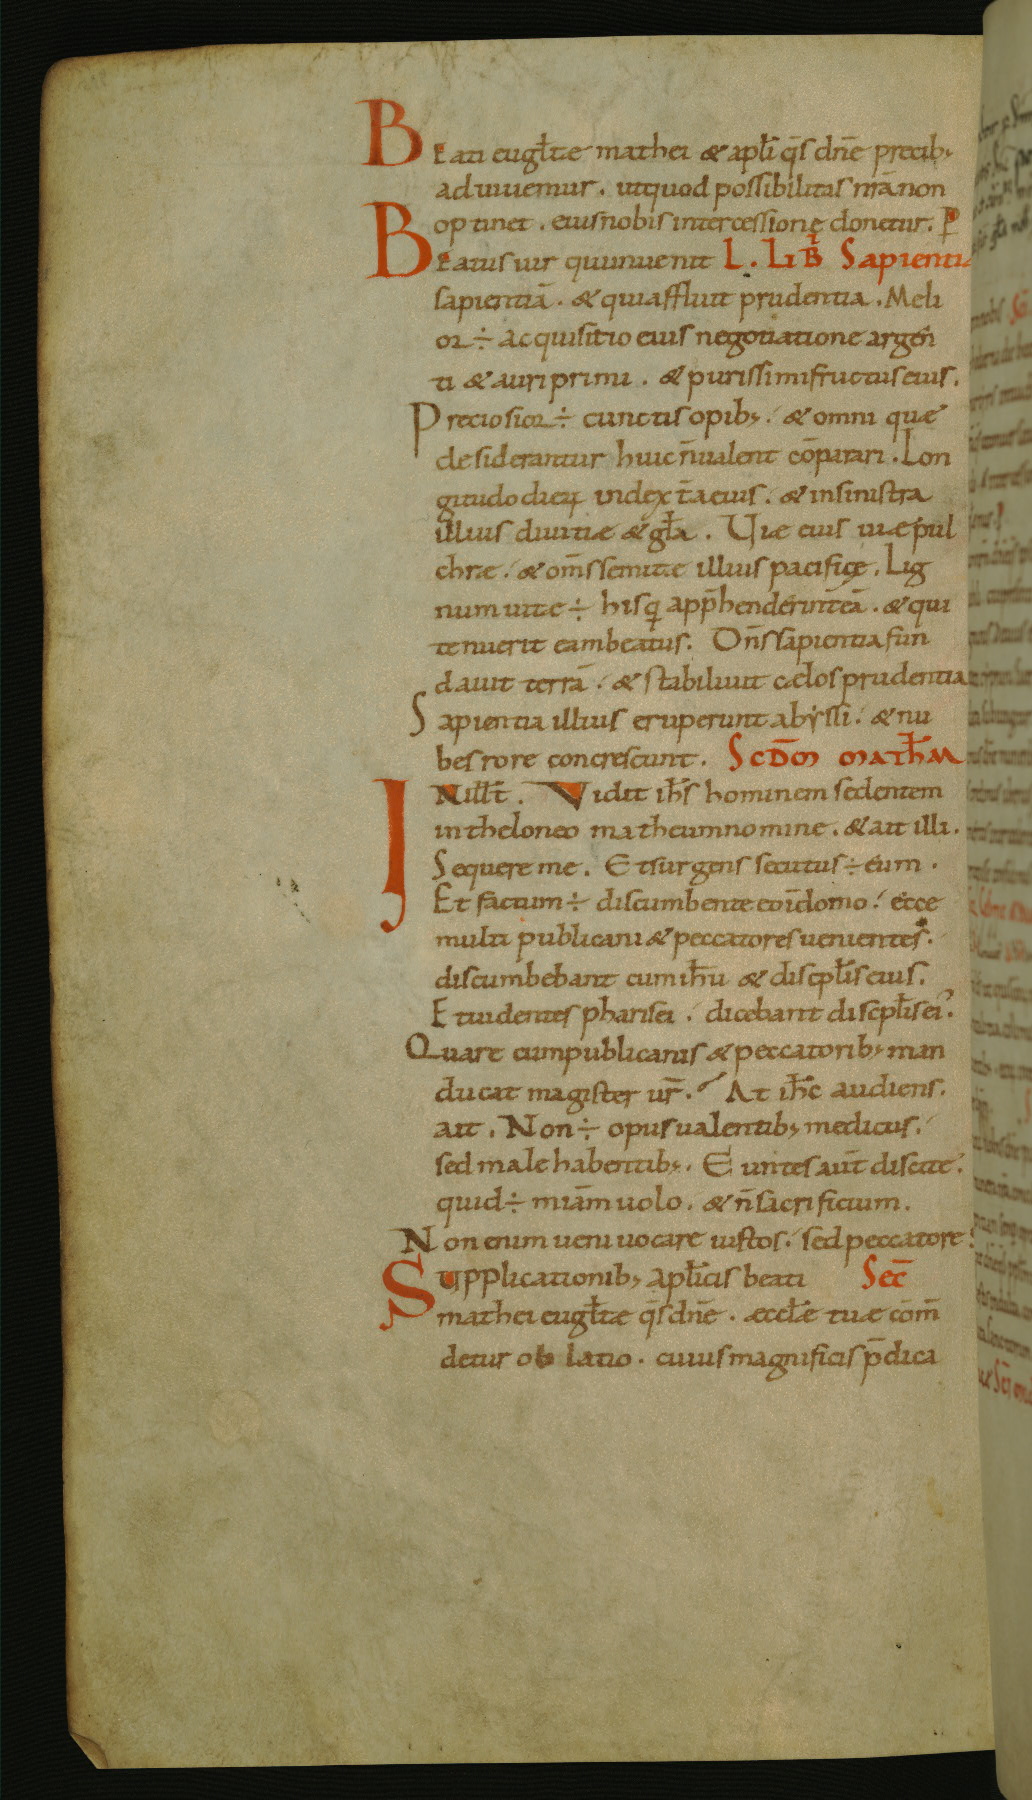 BEati eugl̄tae mathei & apl̄i q̄s dn̄e precib;
adiuuemur. utquod possibilitas nr̄a non
optinet. eius nobis intercessionę donetur. P̄
BEatus uir qui inuenit L. LIB̄ Sapientiæ
sapientiā. & qui affluit prudentia. Meli
or ÷ acquisitio eius negotiatione argen
ti & auri primi. & purissimi fructus eius.
Preciosior ÷ cunctis opib;. & omni quæ
desiderantur huic n̄ualent cōparari. Lon
gitudo dieꝝ in dext̄a eius. & in sinistra
illius diuitiæ & gl̄a. Uiæ eius uiæ pul
chræ. & om̄s semitæ illius pacificę. Lig
num uite ÷ his q̨ app̄henderint eā. & qui
tenuerit eam beatus. Dn̄s sapientia fun
dauit terrā. & stabiliuit cælos prudentia
Sapientia illius eruperunt abẏssi. & nu
bes rore concrescunt. SCDM̄ MATH̄M
INill̄t. Vidit ih̄s hominem sedentem
in theloneo matheum nomine. & ait illi.
Sequere me. Et surgens secutus ÷ eum.
Et factum ÷ discumbente eo in domo. ecce
multi publicani & peccatores uenientes.
discumbebant cum ih̄u & discpl̄is eius.
Et uidentes pharisei. dicebant discpl̄is ei?
Quare cum publicanis & peccatorib; man
ducat magister ur̄. At ih̄c audiens.
ait. Non ÷ opus ualentib; medicus.
sed male habentib;. Euntes aut̄ discite.
quid ÷ miām uolo. & n̄ sacrificium.
Non enim ueni uocare iustos. sed peccatore
SUpplicationib; apl̄icis beati Sec̄
mathei eugl̄tæ q̄s dn̄e. æccl̄æ tuæ com̄
detur oblatio. cuius magnificis p̄dica